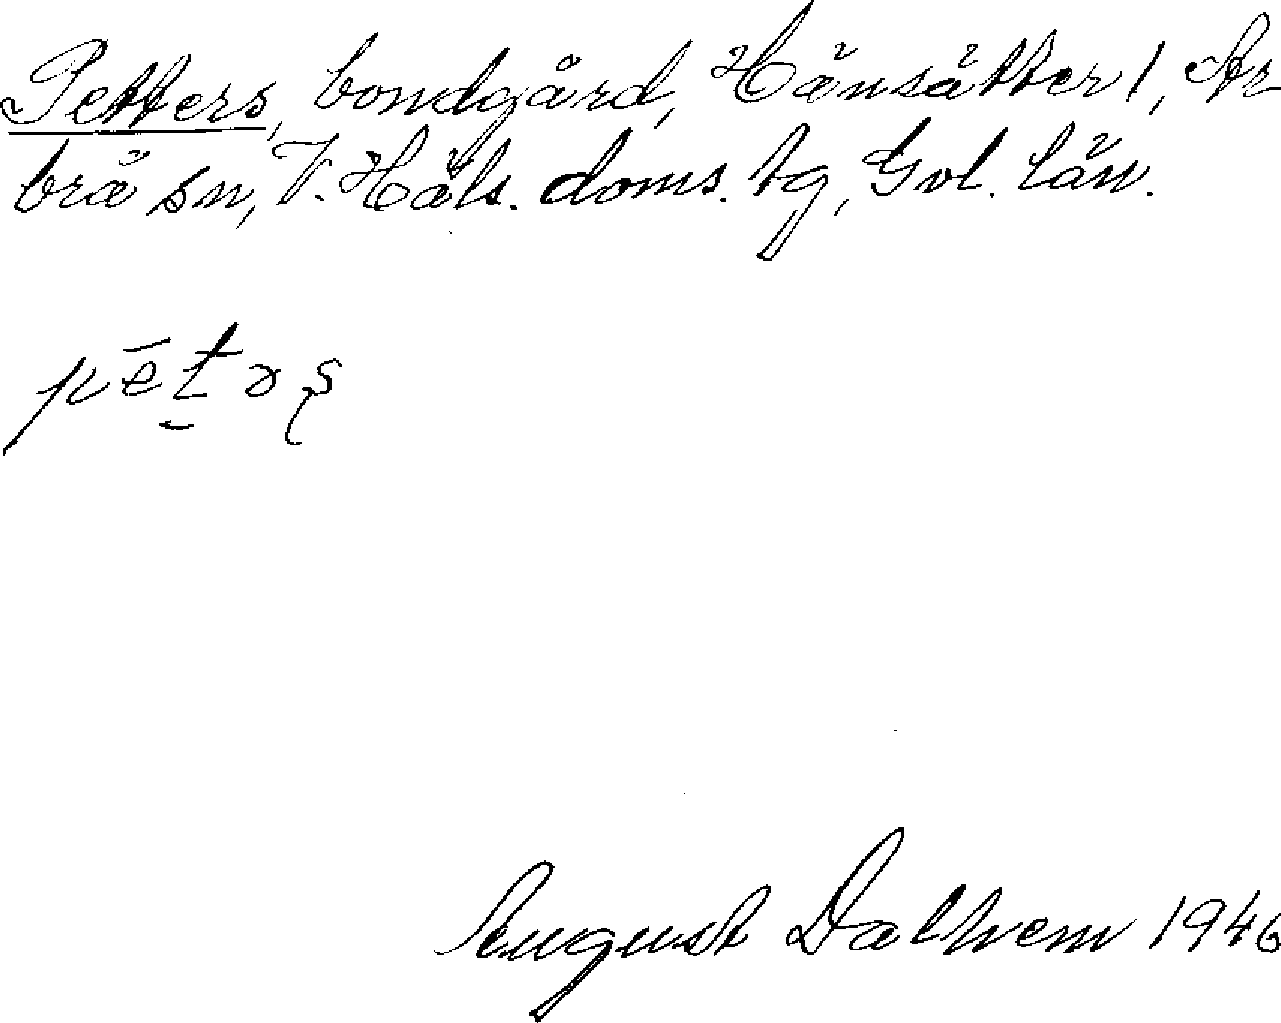 Petters, bondgård, Hänsätter 1, Ar-
brå sn, V. Häls. doms. tg, Gvl. län.
pētəʂ
August Dalhem 1946